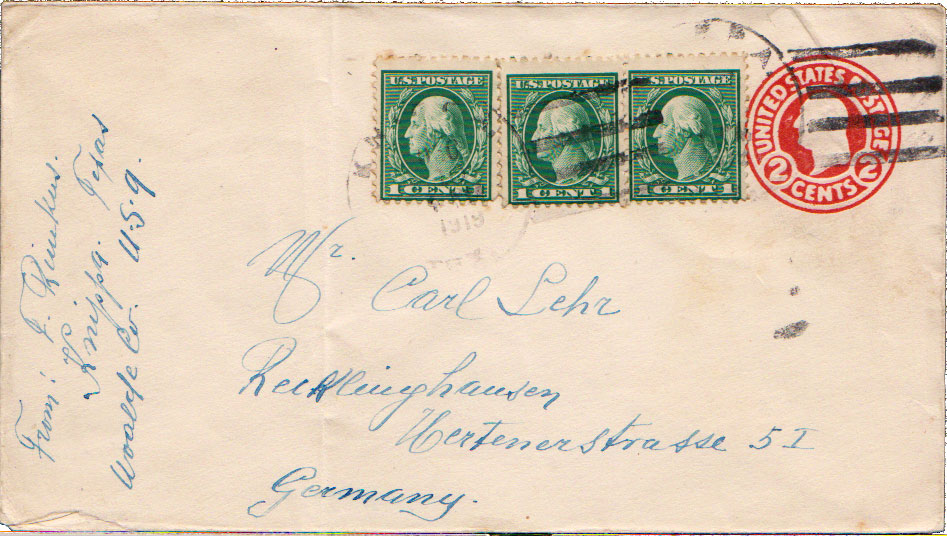 U.S. POSTAGE
1 CENT 1
U.S. POSTAGE
1 CENT 1
U.S. POSTAGE
1 CENT 1
UNITED STATES POSTAGE
2 CENTS 2
1919
Mr.
Carl Lehr
Recklinghausen
Hertenerstrasse 5 I
Germany.
From: F. Rimkus.
Knippa. Texas
Uvalde Co. U.S.A.